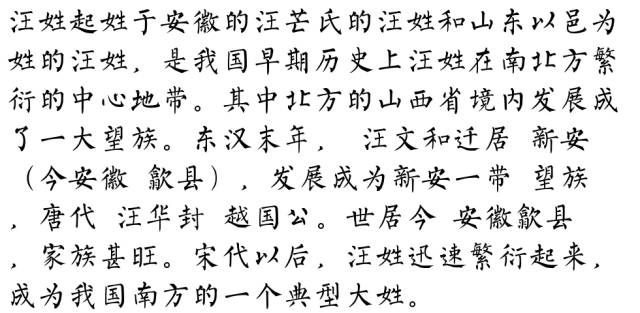 汪姓起姓于安徽的汪芒氏的汪姓和山东以邑为
姓的汪姓，是我国早期历史上汪姓在南北方繁
衍的中心地带。其中北方的山西省境内发展成
了一大望族。东汉末年， 汪文和迁居 新安
（今安徽 歙县），发展成为新安一带 望族
，唐代 汪华封 越国公。世居今 安徽歙县
，家族甚旺。宋代以后，汪姓迅速繁衍起来，
成为我国南方的一个典型大姓。